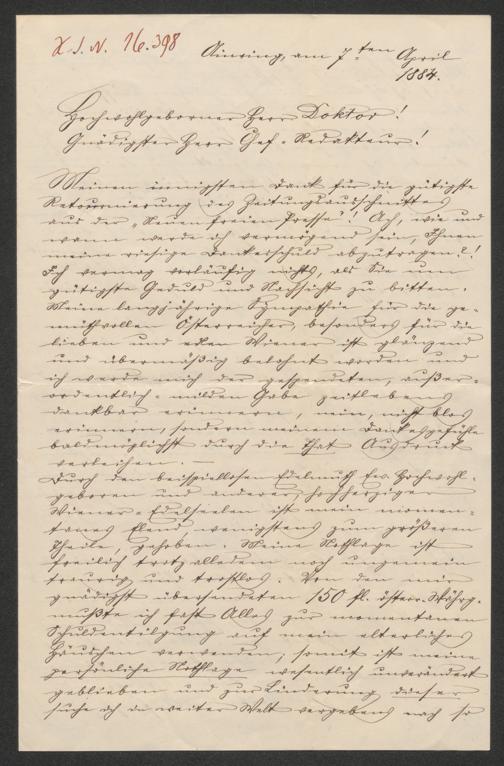 X. I. N. 76.398
Ainring, am 7ten April
1884.
Hochwohlgeborner Herr Doktor!
Gnädigster Herr Chef-Redakteur!
Meinen innigsten Dank für die gütigste
Retournierung des Zeitungsausschnittes
aus der „Neuen freien Presse"! Ach, wie und
wann werde ich vermögend sein, Ihnen
meine riesige Dankesschuld abzutragen?!
Ich vermag vorläufig nichts, als Sie um
gütigste Geduld und Nachsicht zu bitten.
Meine langjährige Sympathie für die ge-
müthvollen Österreicher, besonders für die
lieben und edlen Wiener ist glänzend
und übermäßig belohnt worden und
ich werde mich der gespendeten, außer-
ordentlich-milden Gabe zeitlebens
dankbar erinnern, nein, nicht blos
erinnern, sondern meinem Dankesgefühle
baldmöglichst durch die That Ausdruck
verleihen. —
Durch den beispiellosen Edelmuth Ew. Hochwohl-
geboren und anderer, hochherziger
Wiener-Edelseelen ist mein momen-
tanes Elend, wenigstens zum größeren
Theile, gehoben. Meine Nothlage ist
freilich trotz alledem noch ungemein
traurig und trostlos. Von den mir
gnädigst übersendeten 150 fl. österr. Währg.
mußte ich fast Alles zur momentanen
Schuldentilgung auf mein elterliches
Häuschen verwenden; somit ist meine
persönliche Nothlage wesentlich unverändert
geblieben und zur Linderung dieser
suche ich in weiter Welt vergebens nach so